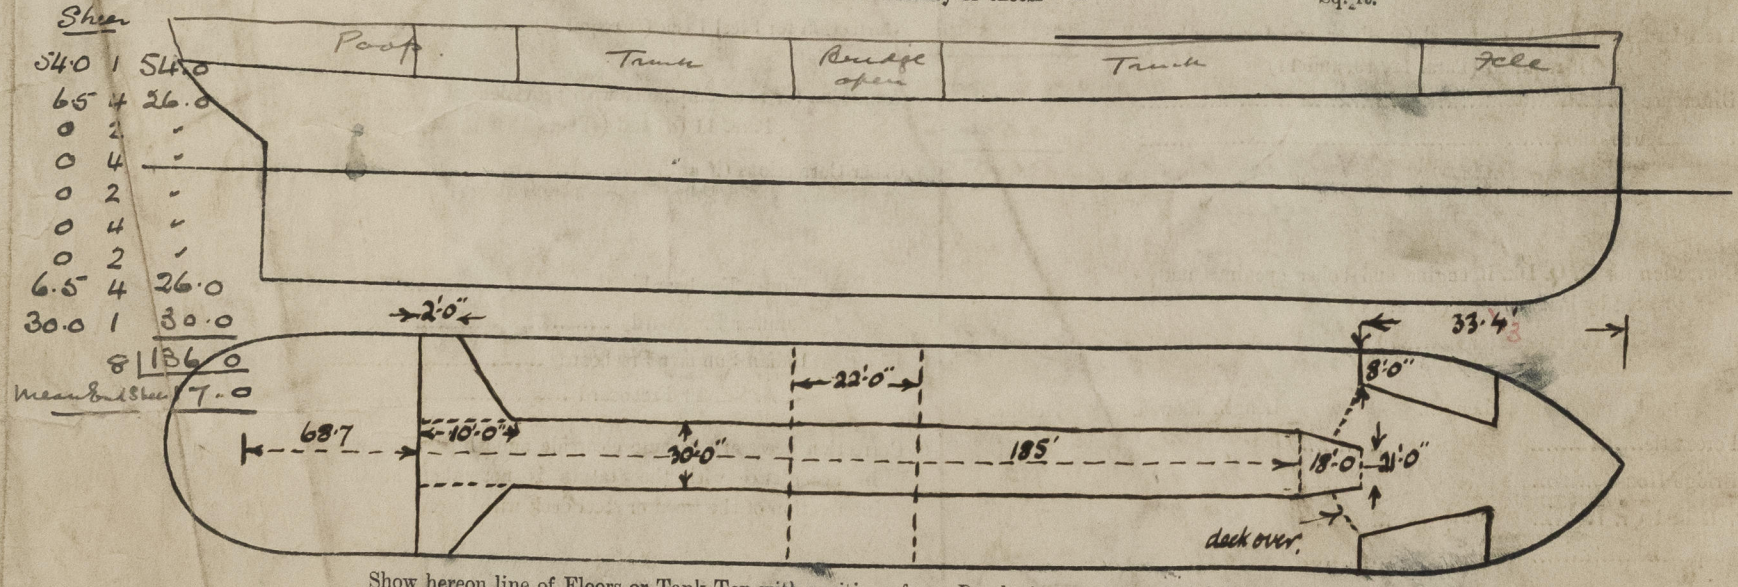 Sheer
54.0 1 54.0
6.5 4 26.0
0 2 "
0 4 "
0 2 "
0 4 "
0 2 "
6.5 4 26.0
30.0 1 30.0
8 136.0
Mean End Sheer 17.0
Poop.
Trunk
Bridge open
Trunk
Fcle
2'.0"
33.4'
3
8'.0"
22'.0"
68.7
10'.0"
30'.0"
185'
18'.0
21'.0"
deck over.
Show hereon line of Floors or Tank Top with